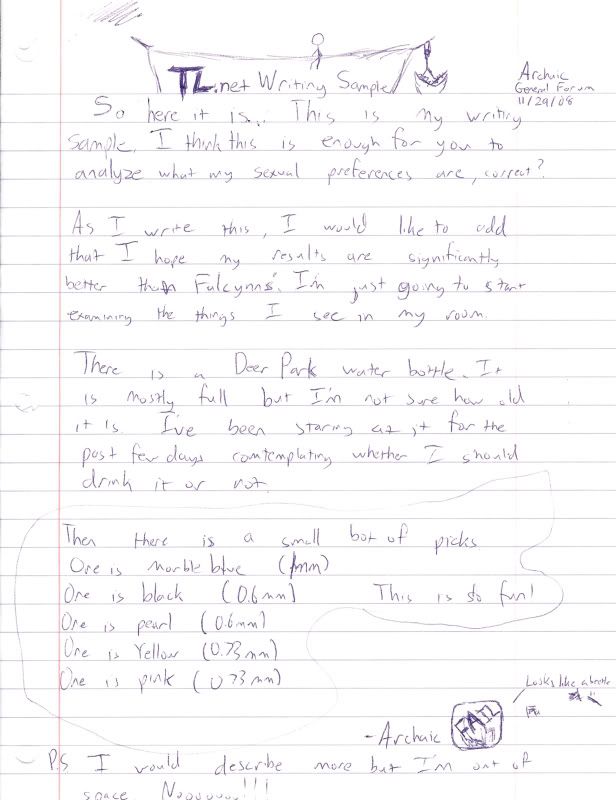 TL.net Writing Sample
Archaic
General Forum
11/29/08
So here it is... This is my writing
sample. I think this is enough for you to
analyze what my sexual preferences are, correct?
As I write this, I would like to add
that I hope my results are significantly
better than Falcynns'. I'm just going to start
examining the things I see in my room.
There is a Deer Park water bottle. It
is mostly full but I'm not sure how old
it is. I've been staring at it for the
past few days comtemplating whether I should
drink it or not.
Then there is a small bot of picks
One is Marble blue (1mm)
One is black (0.6mm) This is so fun!
One is pearl (0.6mm)
One is Yellow (0.73mm)
One is pink (0.73mm)
Looks like a beetle
-Archaic FAIL
P.S I would describe more but I'm out of
space. Nooooooo!!!